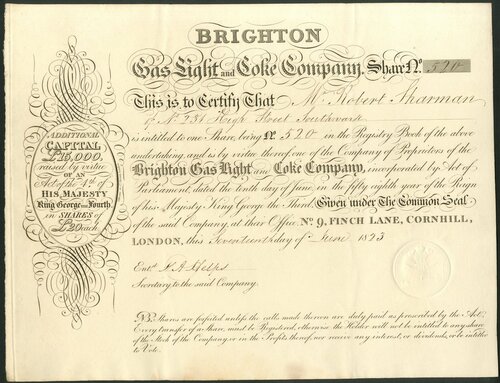 BRIGHTON
Gas Light and Coke Company. Share No. 520
This is to Certify That Mr. Robert Sharman
of No 231 High Street Southwark
is entitled to one Share, being No. 520 in the Registry Book of the above
undertaking, and is by virtue thereof, one of the Company of Proprietors of the
Brighton Gas Light and Coke Company, incorporated by Act of
Parliament, dated the tenth day of June, in the fifty eighth year of the Reign
of his Majesty King George the Third. Given under The Common Seal
of the said Company, at their Office No. 9, FINCH LANE, CORNHILL,
LONDON, this Seventeenth day of June 1823
Entd.
Secretary to the said Company.
ADDITIONAL
CAPITAL
raised by virtue
OF AN
Act of the 4th of
HIS MAJESTY
King George the Fourth,
in SHARES of
£20 each
NB. Shares are forfeited unless the calls made thereon are duly paid as prescribed by the Act.
Every transfer of a Share, must be Registered, otherwise the Holder will not be entitled to any share
of the Stock of the Company, or in the Profits thereof, nor receive any interest, or dividends, or be entitled
to Vote.